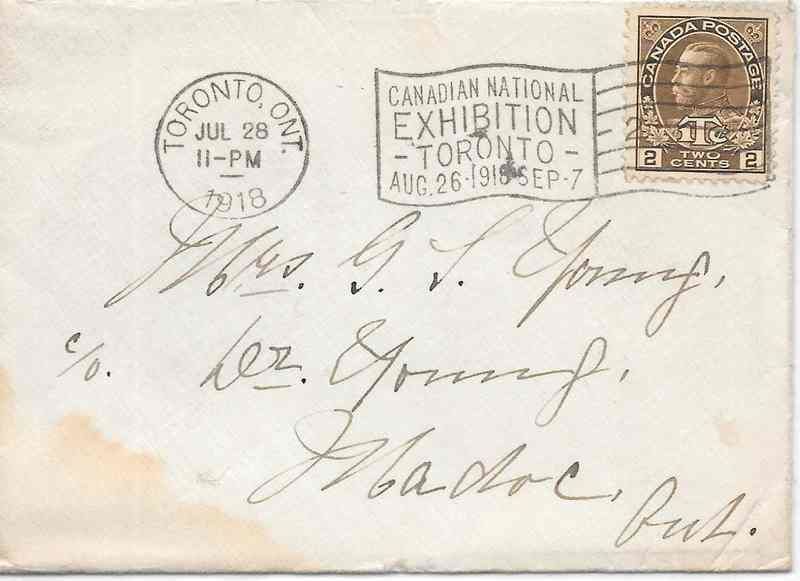 TORONTO, ONT.
JUL 28
11-PM
1918
CANADIAN NATIONAL
EXHIBITION
- TORONTO -
AUG. 26-1918-SEP-7
CANADA POSTAGE
1Tc
2 TWO CENTS 2
Mrs. G. S. Young,
c/o. Dr. Young,
Madoc,
Ont.